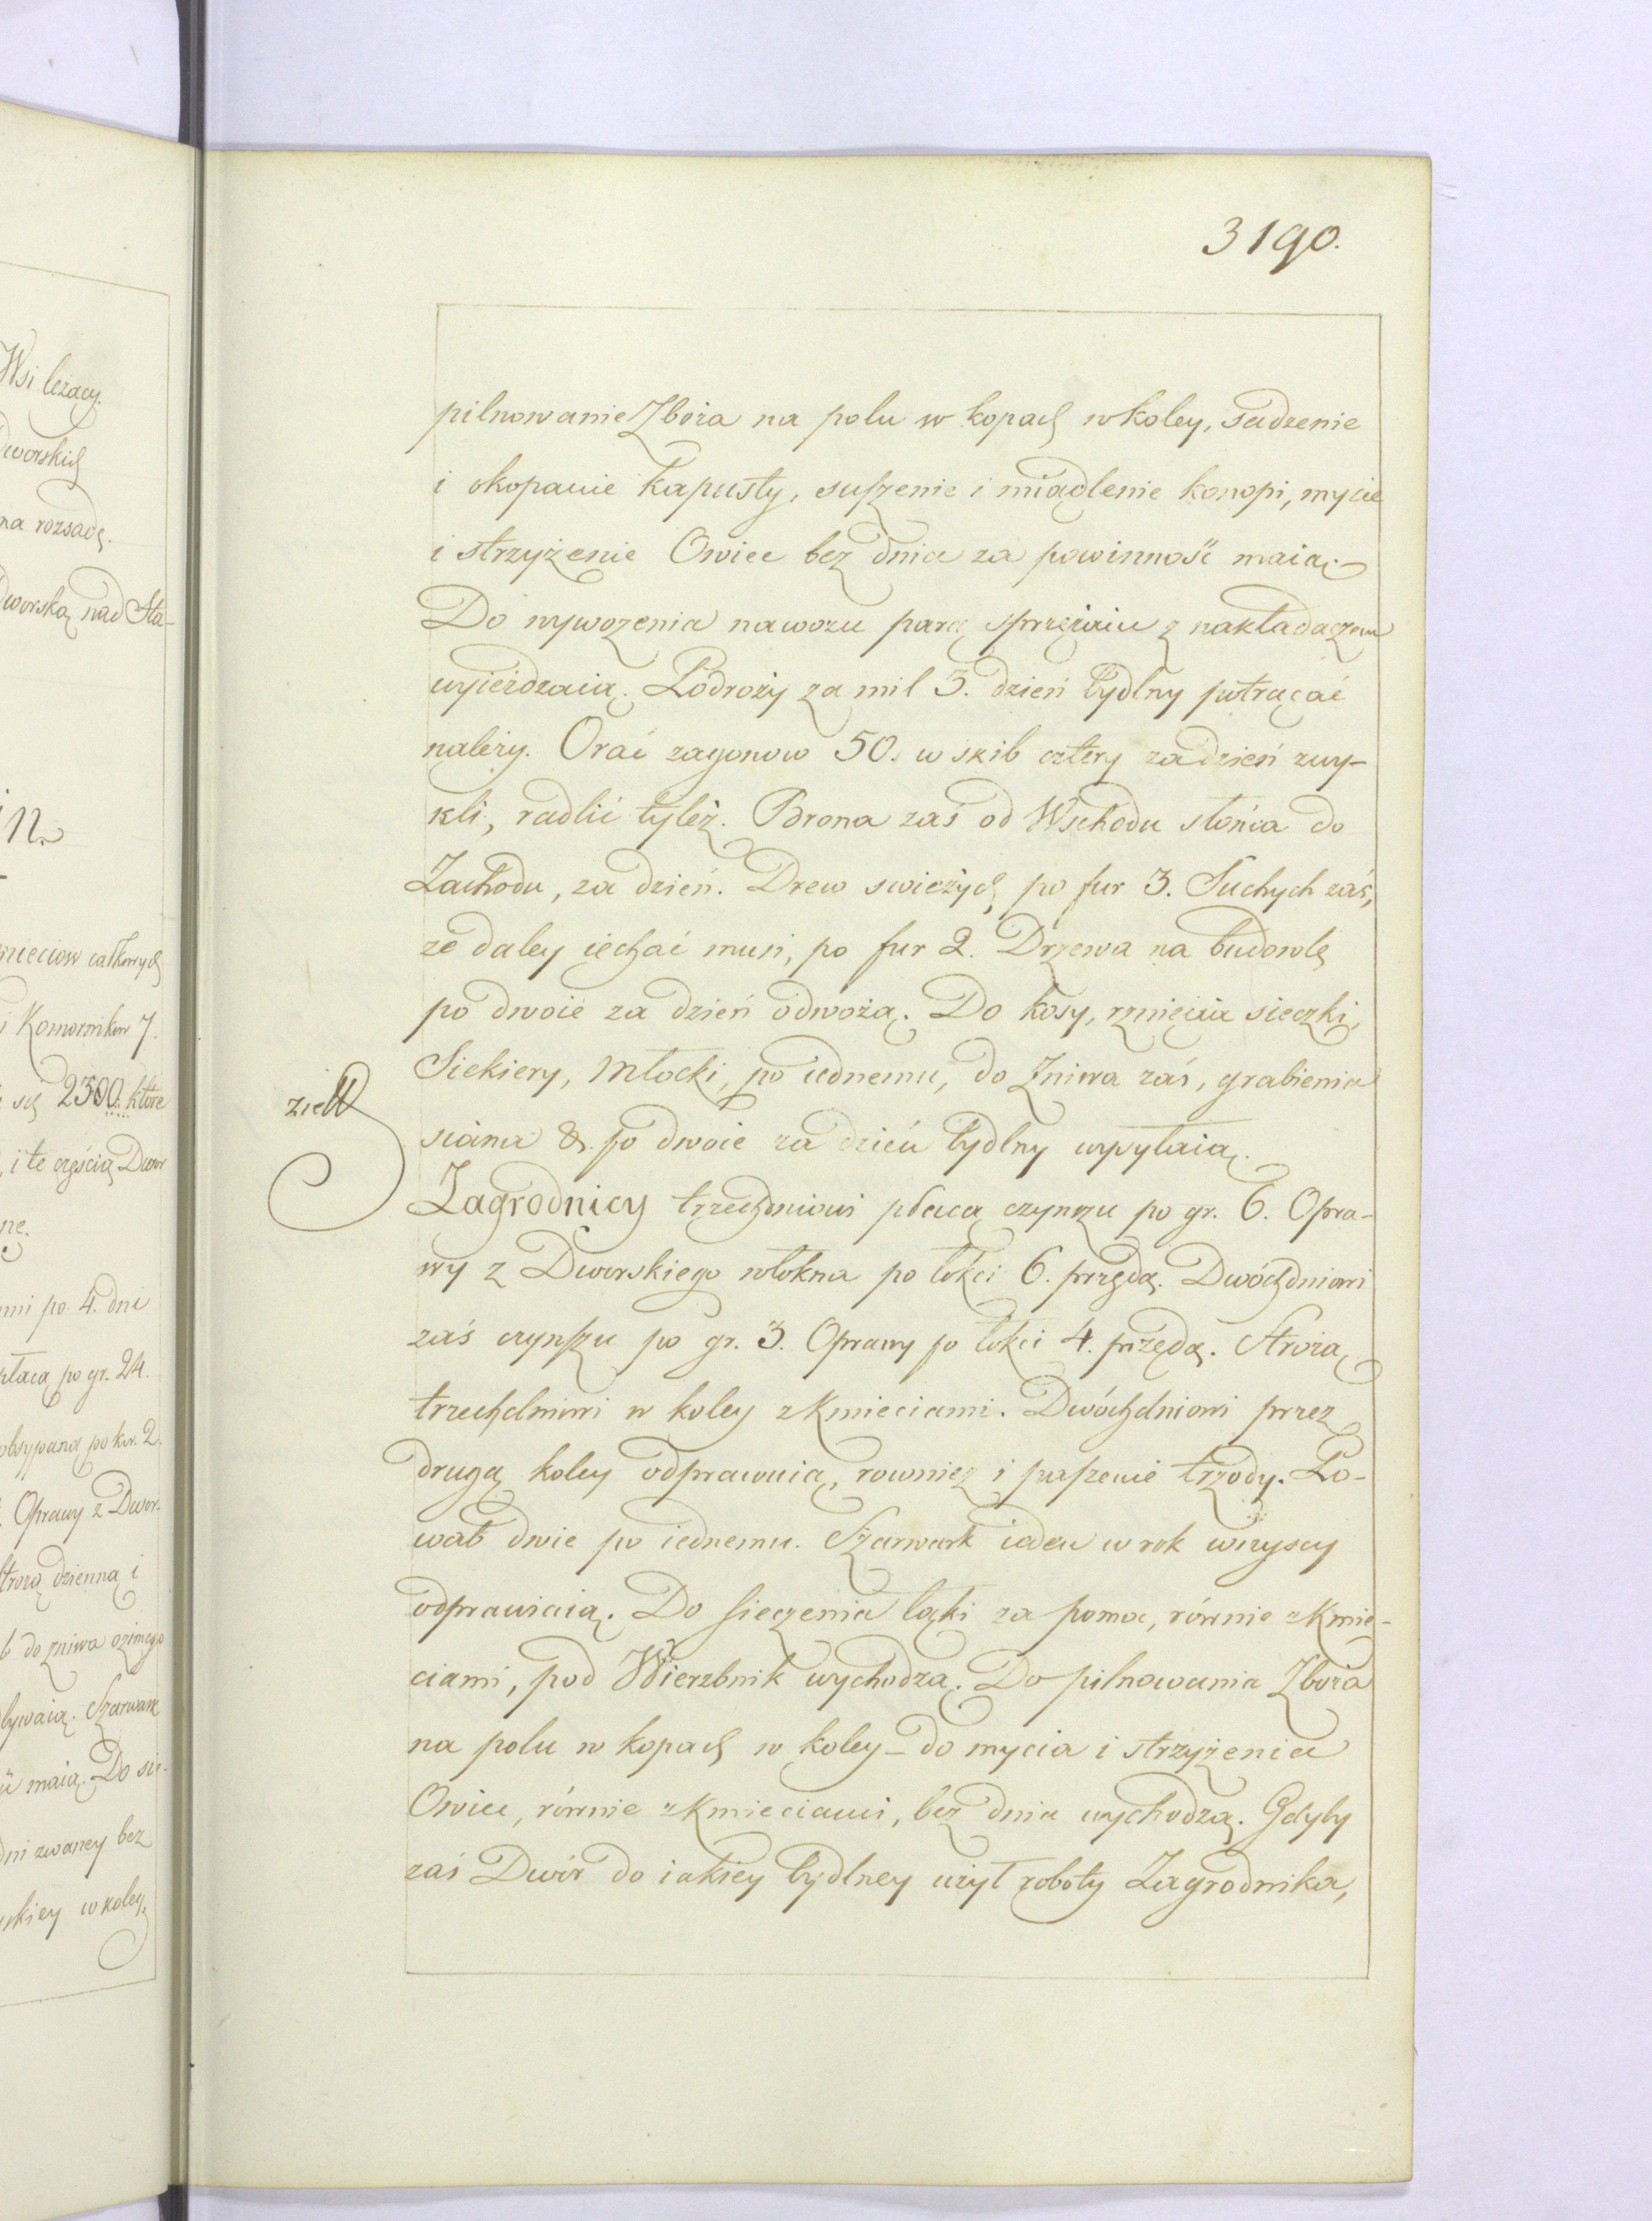 Wsi leżacy.
Dworskich
na rozsadę.
Dworską nad Sta-
in.
Kmieciow całkowych
i Komornikow 7.
się 2300. ktore
, i te częścią Dwor
ne.
mi po 4. dni
płacą po gr. 24.
obsypaną po kor. 2.
Oprawy z Dwor.
Stróżą dzienną i
b do zniwa ozimego
bywaią. Szarwark
maią. Do sie-
dni zwaney bez
skiey w koley,
3190.
pilnowanie Zboża na polu w kopach w koley, sadzenie
i okopanie kapusty, suszenie i miądlenie konopi, mycie
i strzyżenie Owiec bez dnia za powinność maią.
Do wywozenia nawozu parą sprzężaiu z nakładaczem
wyieżdzaią. Podroży za mil 3. dzień tydlny potrącać
należy. Orać zagonow 50. w skib cztery za dzień zwy-
kli, radlić tyleż. Brona zaś od Wschodu słońca do
Zachodu, za dzień. Drew swieżych po fur 3. Suchych zaś,
ze daley iechać musi, po fur 2. Drzewa na budowlę
po dwoie za dzień odwożą. Do kosy, rznięcia sieczki,
Siekiery, Młocki, po iednemu, do Zniwa zaś, grabienia
siana &. po dwoie za dzień tydlny wysyłaią.
Zagrodnicy trzechdniowi płacą czynszu po gr. 6. Opra-
wy z Dworskiego włokna po łokci 6. przędą. Dwóchdniowi
zaś czynszu po gr. 3. Oprawy po łokci 4. przędą. Strożą
trzechdniowi w koley z Kmieciami. Dwóchdniowi przez
drugą koley odprawuią, rowniez i paszenie trzody. Po-
wab dwie po iednemu. Szarwark ieden w rok wszyscy
odprawiaią. Do sieczenia łąki za pomoc, równie z Kmie-
ciami, pod Wierzbnik wychodzą. Do pilnowania Zboża
na polu w kopach w koley - do mycia i strzyżenia
Owiec, równie z Kmieciami, bez dnia wychodzą. Gdyby
zaś Dwór do iakiey tydlney użył roboty Zagrodnika,